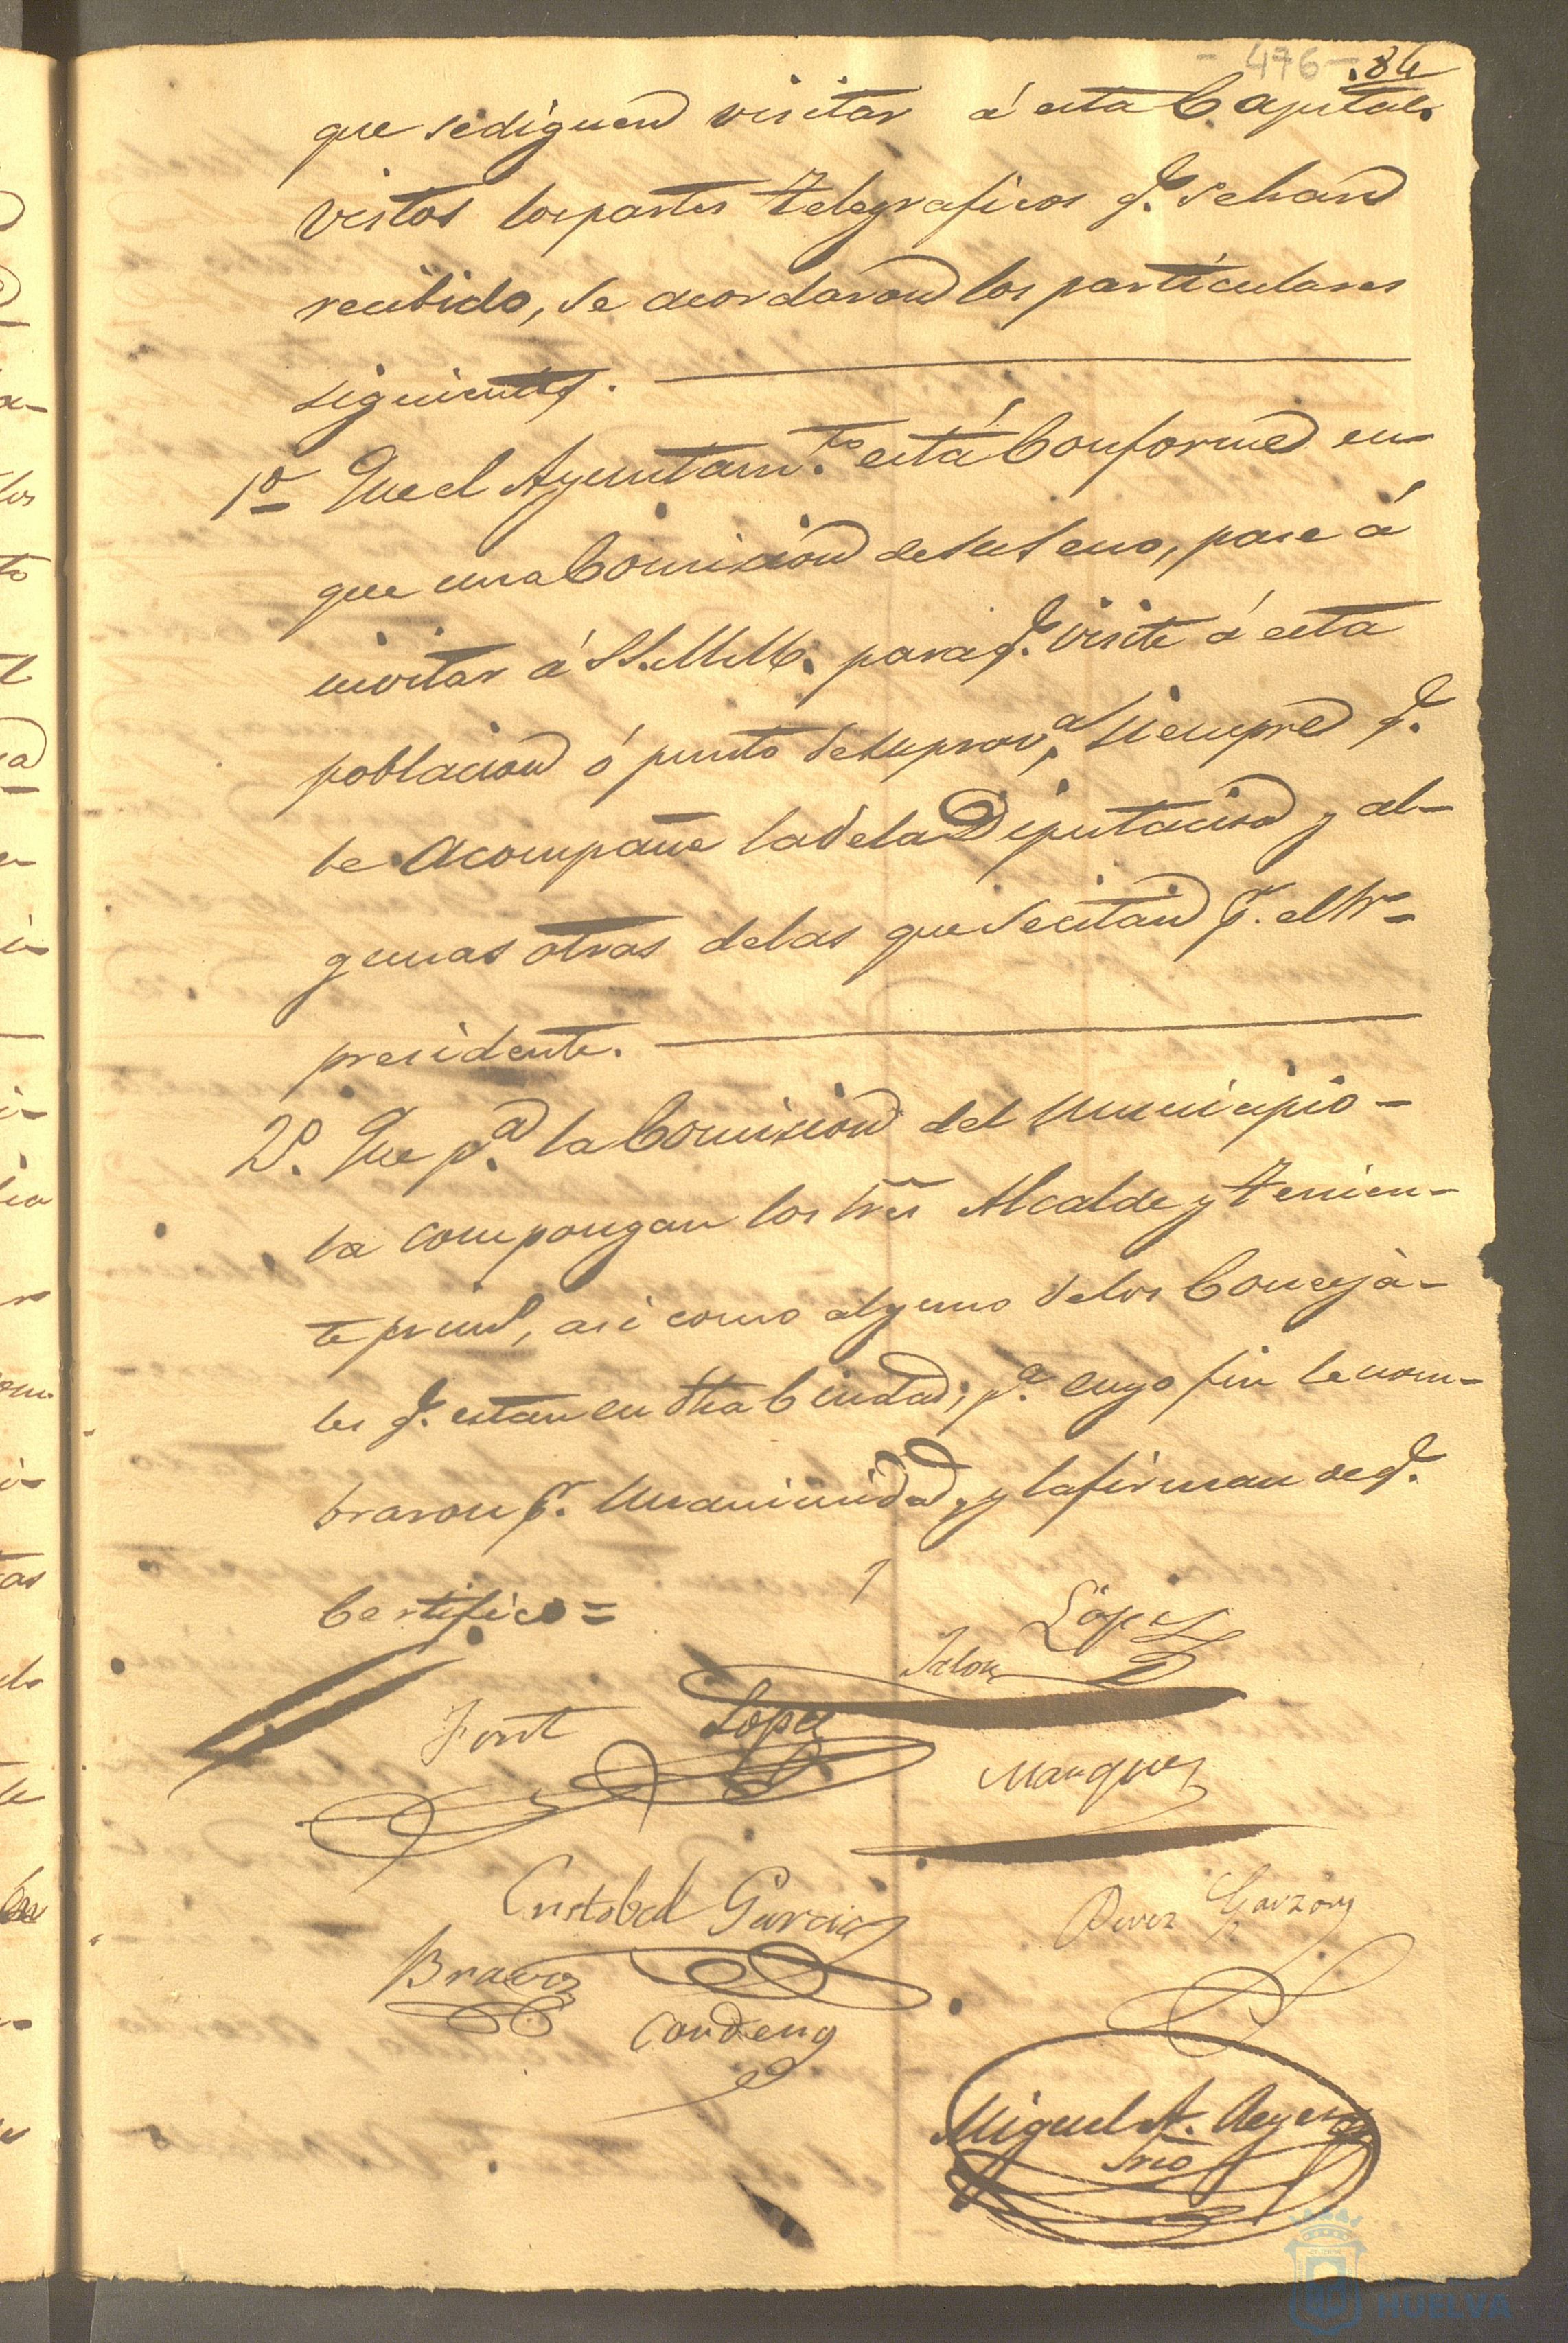 - 476 - .84
que se diguen visitar á esta Capital.
vistos los partes telegraficos q.e se han
recibido, se acordaron los particulares
siguientes.
1º Que el Ayuntam.to está Conforme en
que una Comision de su seno, pase á
invitar á SS.MM. para q.e visite á esta
poblacion ó punto de su prov.a, siempre q.e
le acompañe la de la Diputacion y al-
gunas otras de las que se citan p.r el Sr.
presidente.
2º. Que p.a la Comision del Municipio -
la compongan los Sres Alcalde y Tenien-
te primº, asi como alguno de los Conceja-
les q.e estan en dha Ciudad; p.a cuyo fin le nom-
braron p.r Unanimidad, y la firman de q.e
Certifico =
López
Jalon
Font López
Marquez
Cristobal Garcia
Perez Garzon
Bravo
Condeng
Miguel A. Reyes
Srio
HUELVA